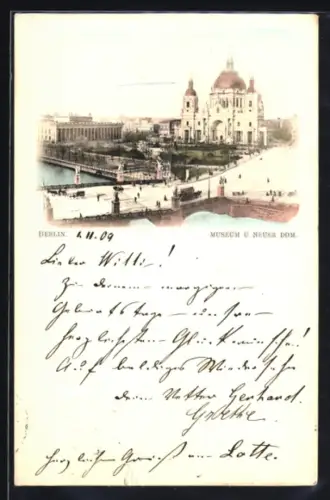 BERLIN. 1.11.09 MUSEUM U NEUER DOM.
Lieber Willi!
Zu deinem morgigen
Geburtstage
herzlichsten Glückwünsche!
Auf baldiges Wiedersehn
dein Vetter Gerhard.
herzlichen Gruß von Lotte.